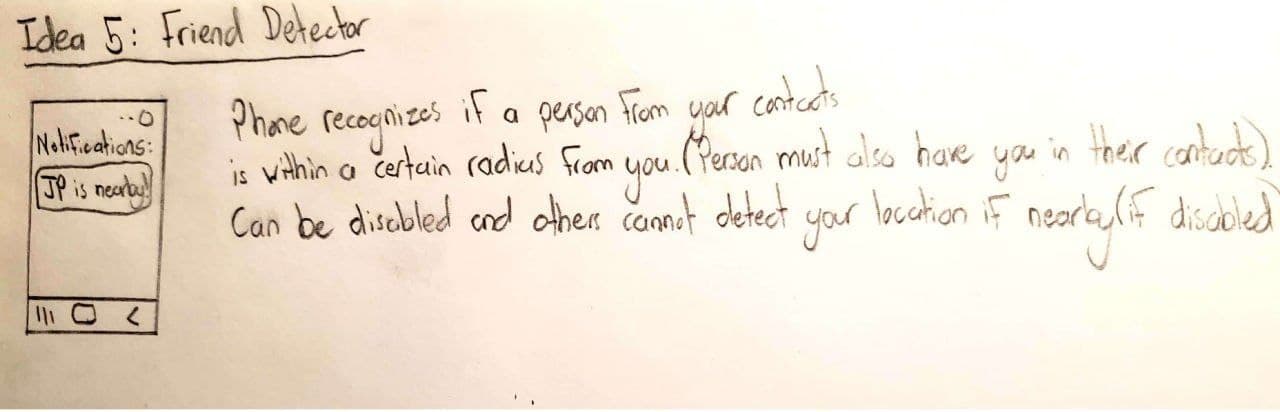 Idea 5: Friend Detector
Notifications:
JP is nearby!
Phone recognizes if a person from your contacts
is within a certain radius from you. (Person must also have you in their contacts).
Can be disabled and others cannot detect your location if nearby (if disabled)